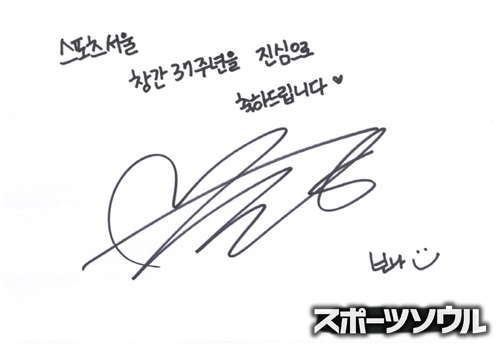 스포츠서울
창간 37주년을 진심으로
축하드립니다 ♥
보나
スポーツソウル